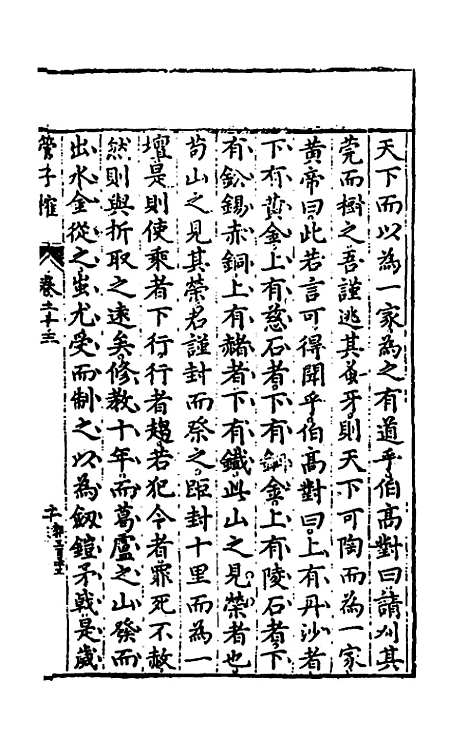 天下而以為一家為之有道乎伯高對曰請刈其
莞而樹之吾謹逃其蚤牙則天下可陶而為一家
黄帝曰此若言可得聞乎伯高對曰上有丹沙者
下有黄金上有慈石者下有銅金上有陵石者下
有鈆錫赤銅上有赭者下有鐵此山之見榮者也
苟山之見其榮君謹封而祭之距封十里而為一
壇是則使乘者下行行者趨若犯令者罪死不赦
然則與折取之遠矣修教十年而葛盧之山發而
出水金從之蚩尤受而制之以為劔鎧矛戟是歲
管子榷 卷二十三